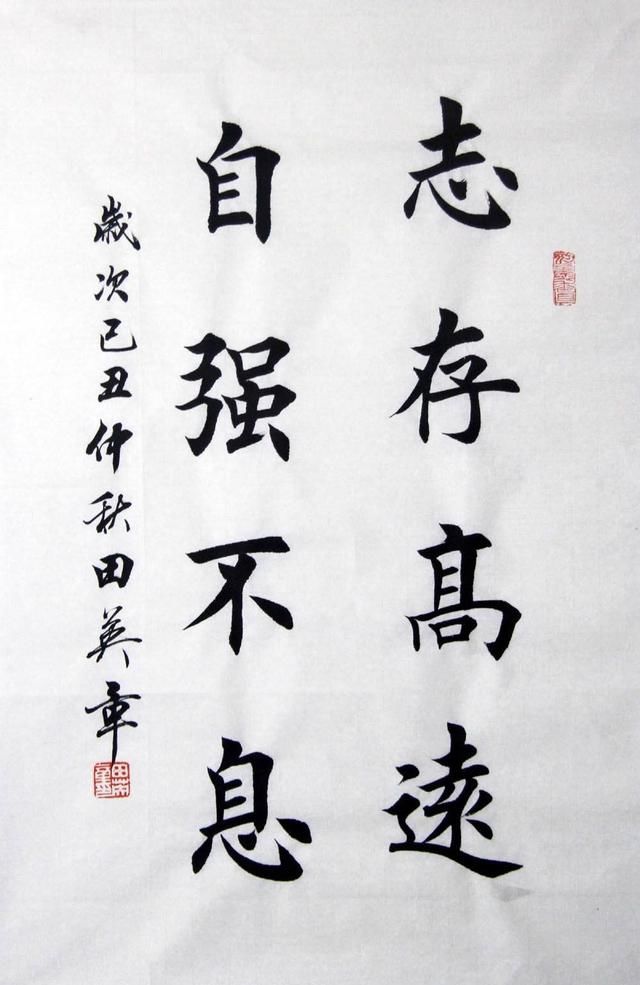 志存髙遠
自强不息
歲次己丑仲秋田英章
田英章